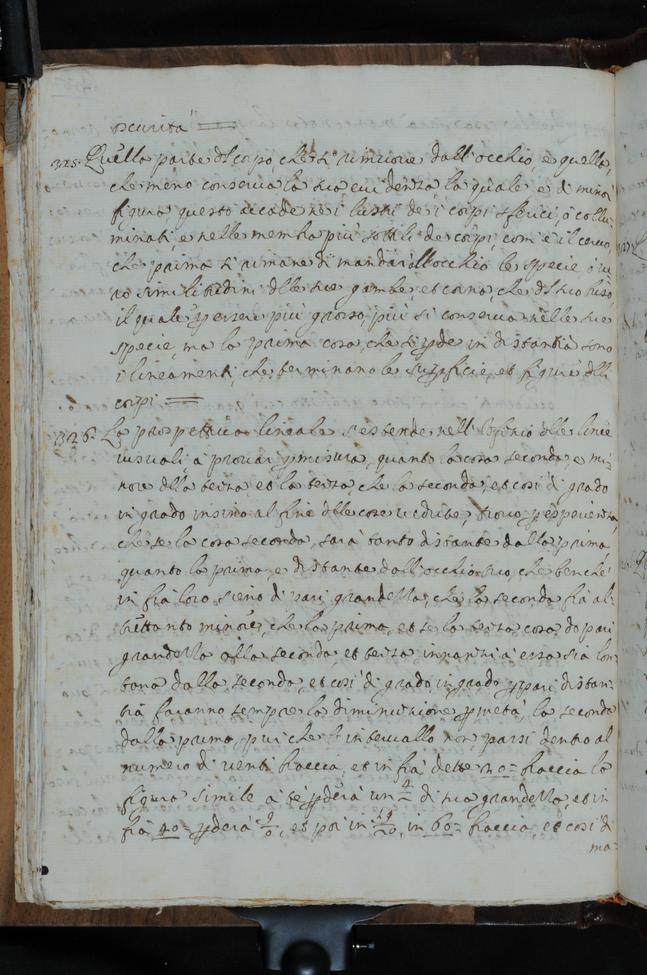 oscurità
325. Quella parte del corpo, che si rimuove dall'occhio, e quella,
che meno conserva la sua evidenza la quale è di minor
figura questo accade ne i lustri de i corpi sferici, ò collu
minati, e nelle membra più sottili de corpi, com'è il cervo
che prima si rimane di mandar all'occhio le specie, ò ve
ro similitudini delle sue gambe, et corna, che del suo busto
il quale per essere più grosso, più si conserva nelle sue
specie, ma la prima cosa, che si perde in distantia sono
i lineamenti, che terminano le superficie, et figure delli
corpi
326. La prospettiva lineale s'estende nell'offitio delle linee
visuali, à provar per misura, quanto la cosa seconda, e mi
nore della terza, et la terza che la seconda, et così di grado
in grado insino al fine delle cose vedute, trovo per esperientia,
che se la cosa seconda, sarà tanto distante dalla prima,
quanto la prima e distante dall'occhio tuo, che benche
in frà loro sieno di pari grandezza, che la seconda fia al
trettanto minore, che la prima, et se la terza cosa, do pari
grandezza alla seconda, et terza innanzi à essa sia lon
tana dalla seconda, et così di grado in grado per pari distan
tia faranno sempre la diminutione per metà, la seconda
dalla prima, pur che l'intervallo non passi dentro al
numero di venti braccia, et in frà dette 20= braccia la
figura simile à te perderà un di sua grandezza, et in
frà 40= perderà, et poi in, in 60= braccia, et così di
ma